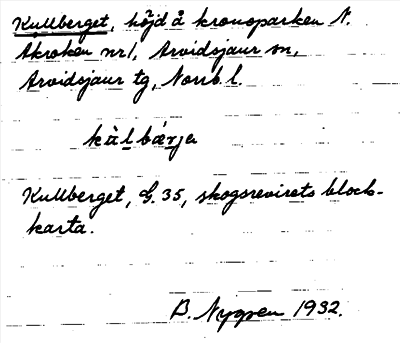 Kullberget, höjd å kronoparken N.
Akroken nr 1, Arvidsjaur sn,
Arvidsjaur tg, Norrb. l.
kälbärje
Kullberget, G. 35, skogsrevirets block-
karta.
B. Nygren 1932.